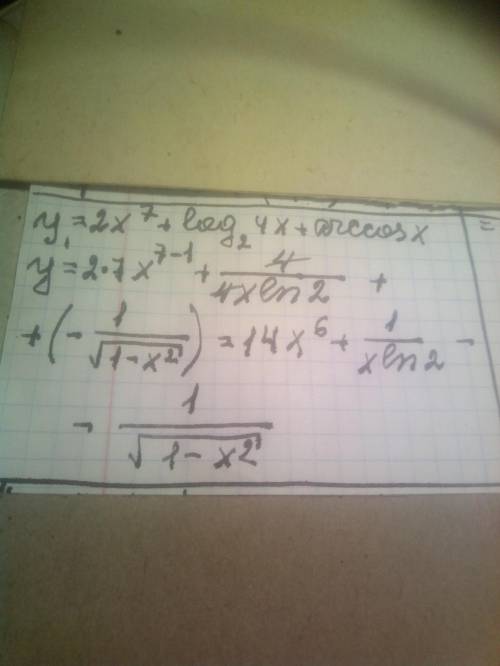 y = 2x^7 + log_2 4x + arccos x =
y' = 2·7x^{7-1} + 4/(4x ln 2) +
+ (- 1/√(1-x²)) = 14x^6 + 1/(x ln 2) -
- 1/√(1-x²)